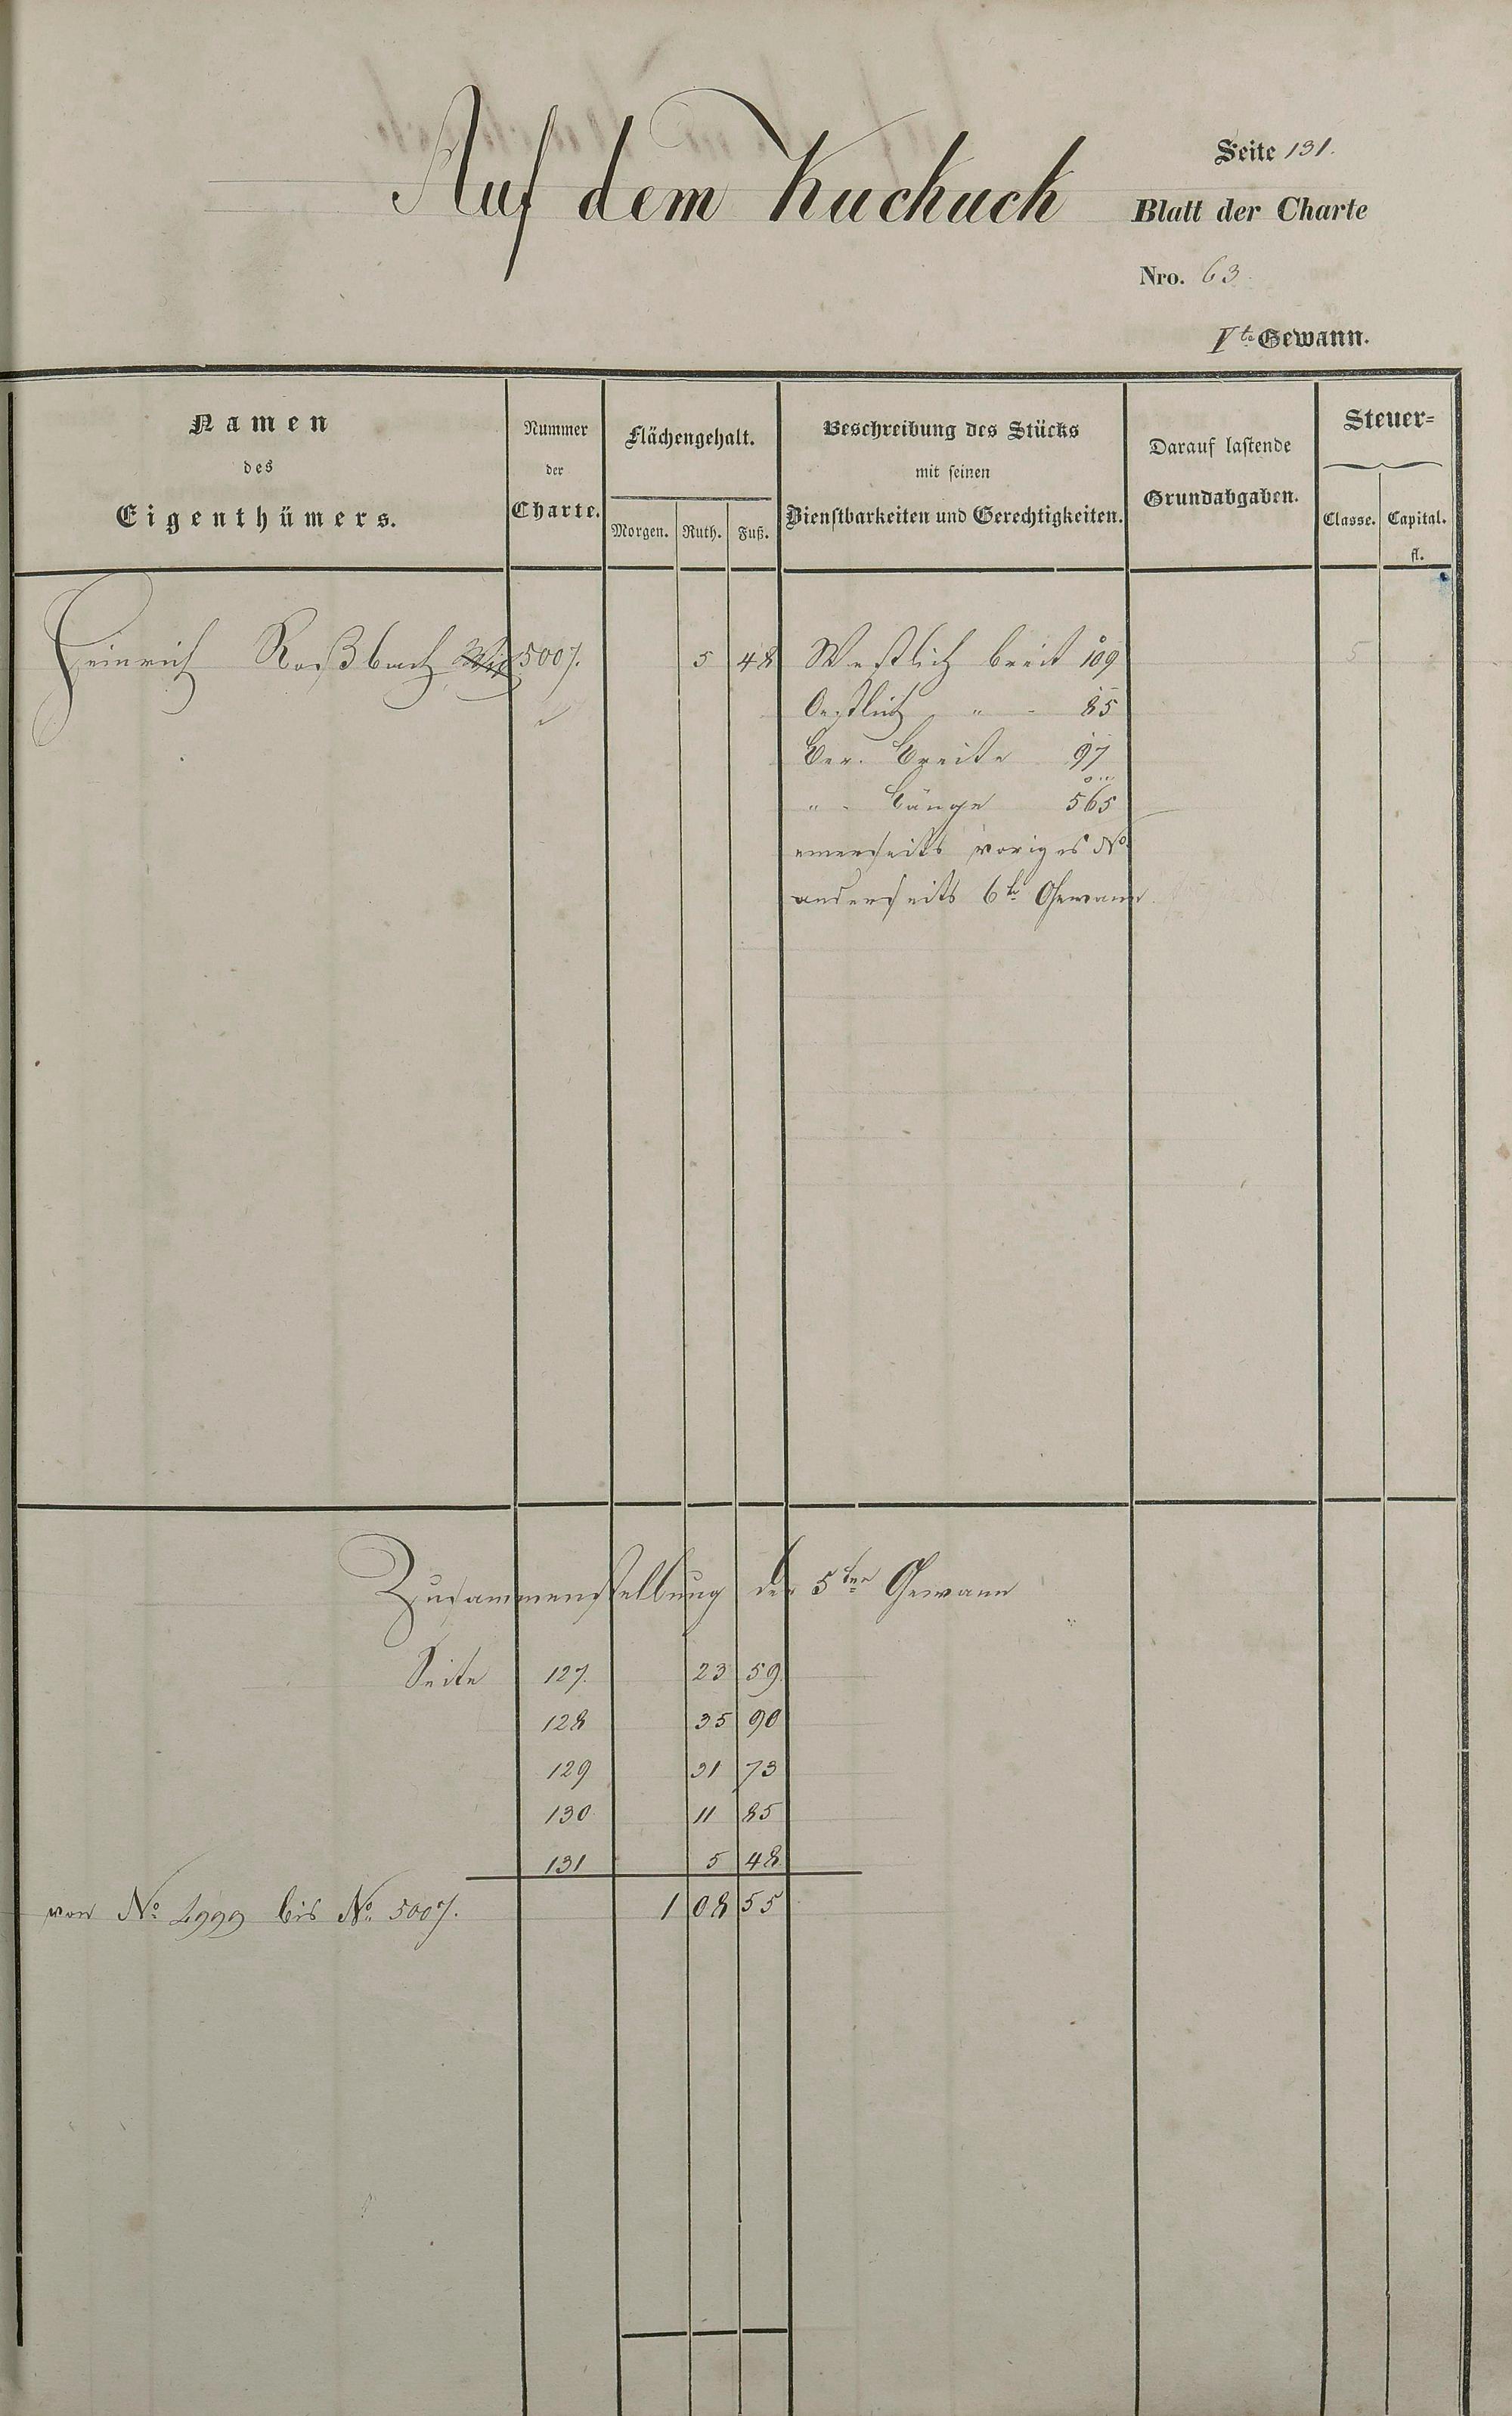 Auf dem Kuckuck
Seite 131.
Blatt der Charte
Nro. 63
Vte Gewann.
Namen
des
Eigenthümers.
Nummer
der
Charte.
Flächengehalt.
Morgen. Ruth. Fuß.
Beschreibung des Stücks
mit seinen
Dienstbarkeiten und Gerechtigkeiten.
Darauf lastende
Grundabgaben.
Steuer-
Classe. Capital.
fl.
Heinrich Roßbach 5007. 5 48 Westlich breit 109 5
Oestlich " - 85
Ber. Breite 97
" - Länge 565
einerseits voriges No.
anderseits 6te Gewann.
Zusammenstellung der 5ten Gewann
Seite 127. 23 59.
128 35 90
129 31 73
130 11 85
131 5 48
von No. 4999 bis No. 5007. 1 08 55